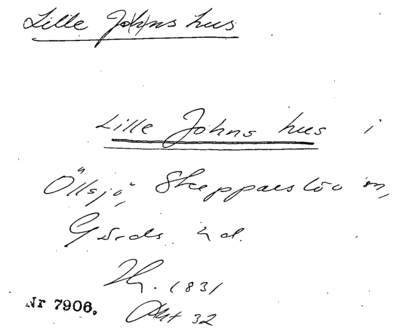 Lille Johns hus
Lille Johns hus i
Öllsjö, Skepparslöv sn,
Gärds hd.
1831
Nr 7906. Akt 32